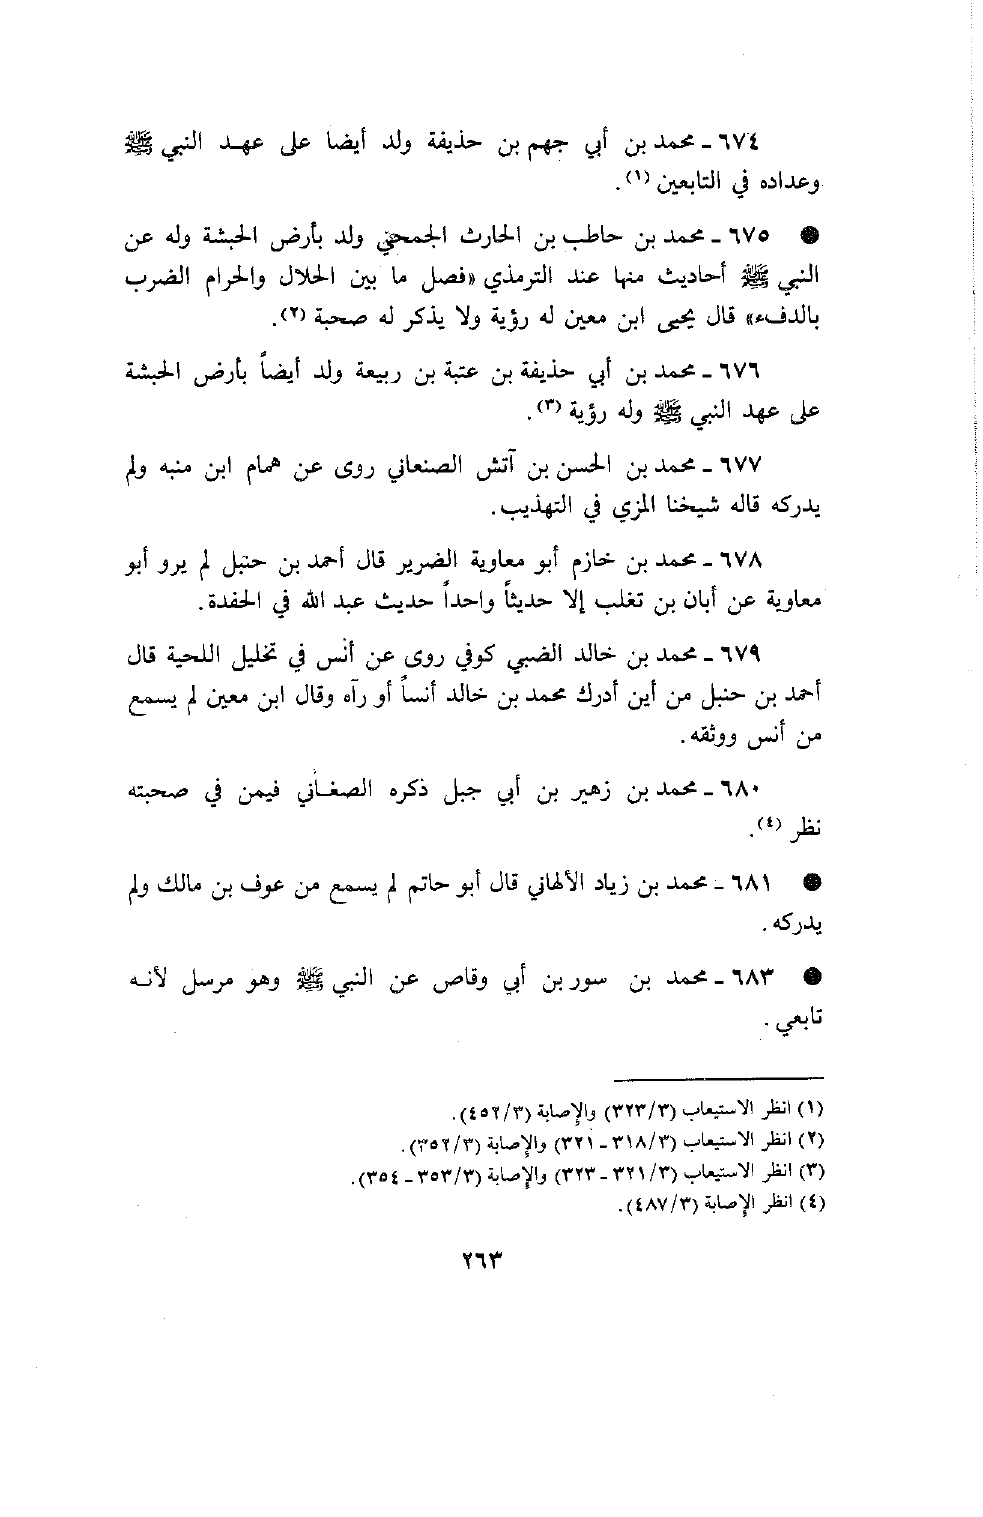 ٦٧٤ ـ محمد بن أبي جهم بن حذيفة ولد أيضا على عهد النبي ﷺ
وعداده في التابعين (١).
● ٦٧٥ ـ محمد بن حاطب بن الحارث الجمحي ولد بأرض الحبشة وله عن
النبي ﷺ أحاديث منها عند الترمذي «فصل ما بين الحلال والحرام الضرب
بالدفء» قال يحيى ابن معين له رؤية ولا يذكر له صحبة (٢).
٦٧٦ ـ محمد بن أبي حذيفة بن عتبة بن ربيعة ولد أيضاً بأرض الحبشة
على عهد النبي ﷺ وله رؤية (٣).
٦٧٧ ـ محمد بن الحسن بن آتش الصنعاني روى عن همام ابن منبه ولم
يدركه قاله شيخنا المزي في التهذيب.
٦٧٨ ـ محمد بن خازم أبو معاوية الضرير قال أحمد بن حنبل لم يرو أبو
معاوية عن أبان بن تغلب إلا حديثاً واحداً حديث عبد الله في الحفدة.
٦٧٩ ـ محمد بن خالد الضبي كوفي روى عن أنس في تخليل اللحية قال
أحمد بن حنبل من أين أدرك محمد بن خالد أنساً أو رآه وقال ابن معين لم يسمع
من أنس ووثقه.
٦٨٠ ـ محمد بن زهير بن أبي جبل ذكره الصغاني فيمن في صحبته
نظر (٤).
● ٦٨١ ـ محمد بن زياد الألهاني قال أبو حاتم لم يسمع من عوف بن مالك ولم
يدركه.
● ٦٨٣ ـ محمد بن سور بن أبي وقاص عن النبي ﷺ وهو مرسل لأنه
تابعي.
(١) انظر الاستيعاب (٣/٣٢٣) والإصابة (٣/٤٥٢).
(٢) انظر الاستيعاب (٣/٣١٨ ـ ٣٢١) والإصابة (٣/٣٥٢).
(٣) انظر الاستيعاب (٣/٣٢١ ـ ٣٢٣) والإصابة (٣/٣٥٣ ـ ٣٥٤).
(٤) انظر الإصابة (٣/٤٨٧).
٢٦٣